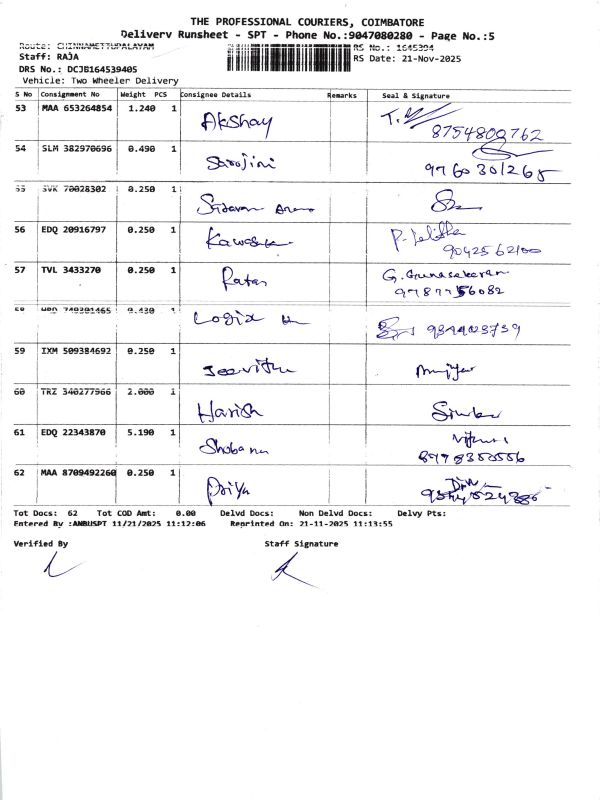 THE PROFESSIONAL COURIERS, COIMBATORE
Delivery Runsheet - SPT - Phone No.:9047080280 - Page No.:5
Route: CHINNAMETTUPALAYAM RS No.: 1645394
Staff: RAJA RS Date: 21-Nov-2025
DRS No.: DCJB164539405
Vehicle: Two Wheeler Delivery
S No Consignment No Weight PCS Consignee Details Remarks Seal & Signature
53 MAA 653264854 1.240 1 Akshay
8754800762
54 SLM 382970696 0.490 1 Sarojini 9760301265
55 SVK 70028302 0.250 1
56 EDQ 20916797 0.250 1
9042562100
57 TVL 3433270 0.250 1 Ratan G. Gunasekaran
9787756082
58 749301465 0.430 1 Logix
59 IXM 509384692 0.250 1 Jeevithu
60 TRZ 340277966 2.000 1 Harish
61 EDQ 22343870 5.190 1 Shobana
62 MAA 8709492260 0.250 1 Priya
Tot Docs: 62 Tot COD Amt: 0.00 Delvd Docs: Non Delvd Docs: Delvy Pts:
Entered By :ANBUSPT 11/21/2025 11:12:06 Reprinted On: 21-11-2025 11:13:55
Verified By Staff Signature